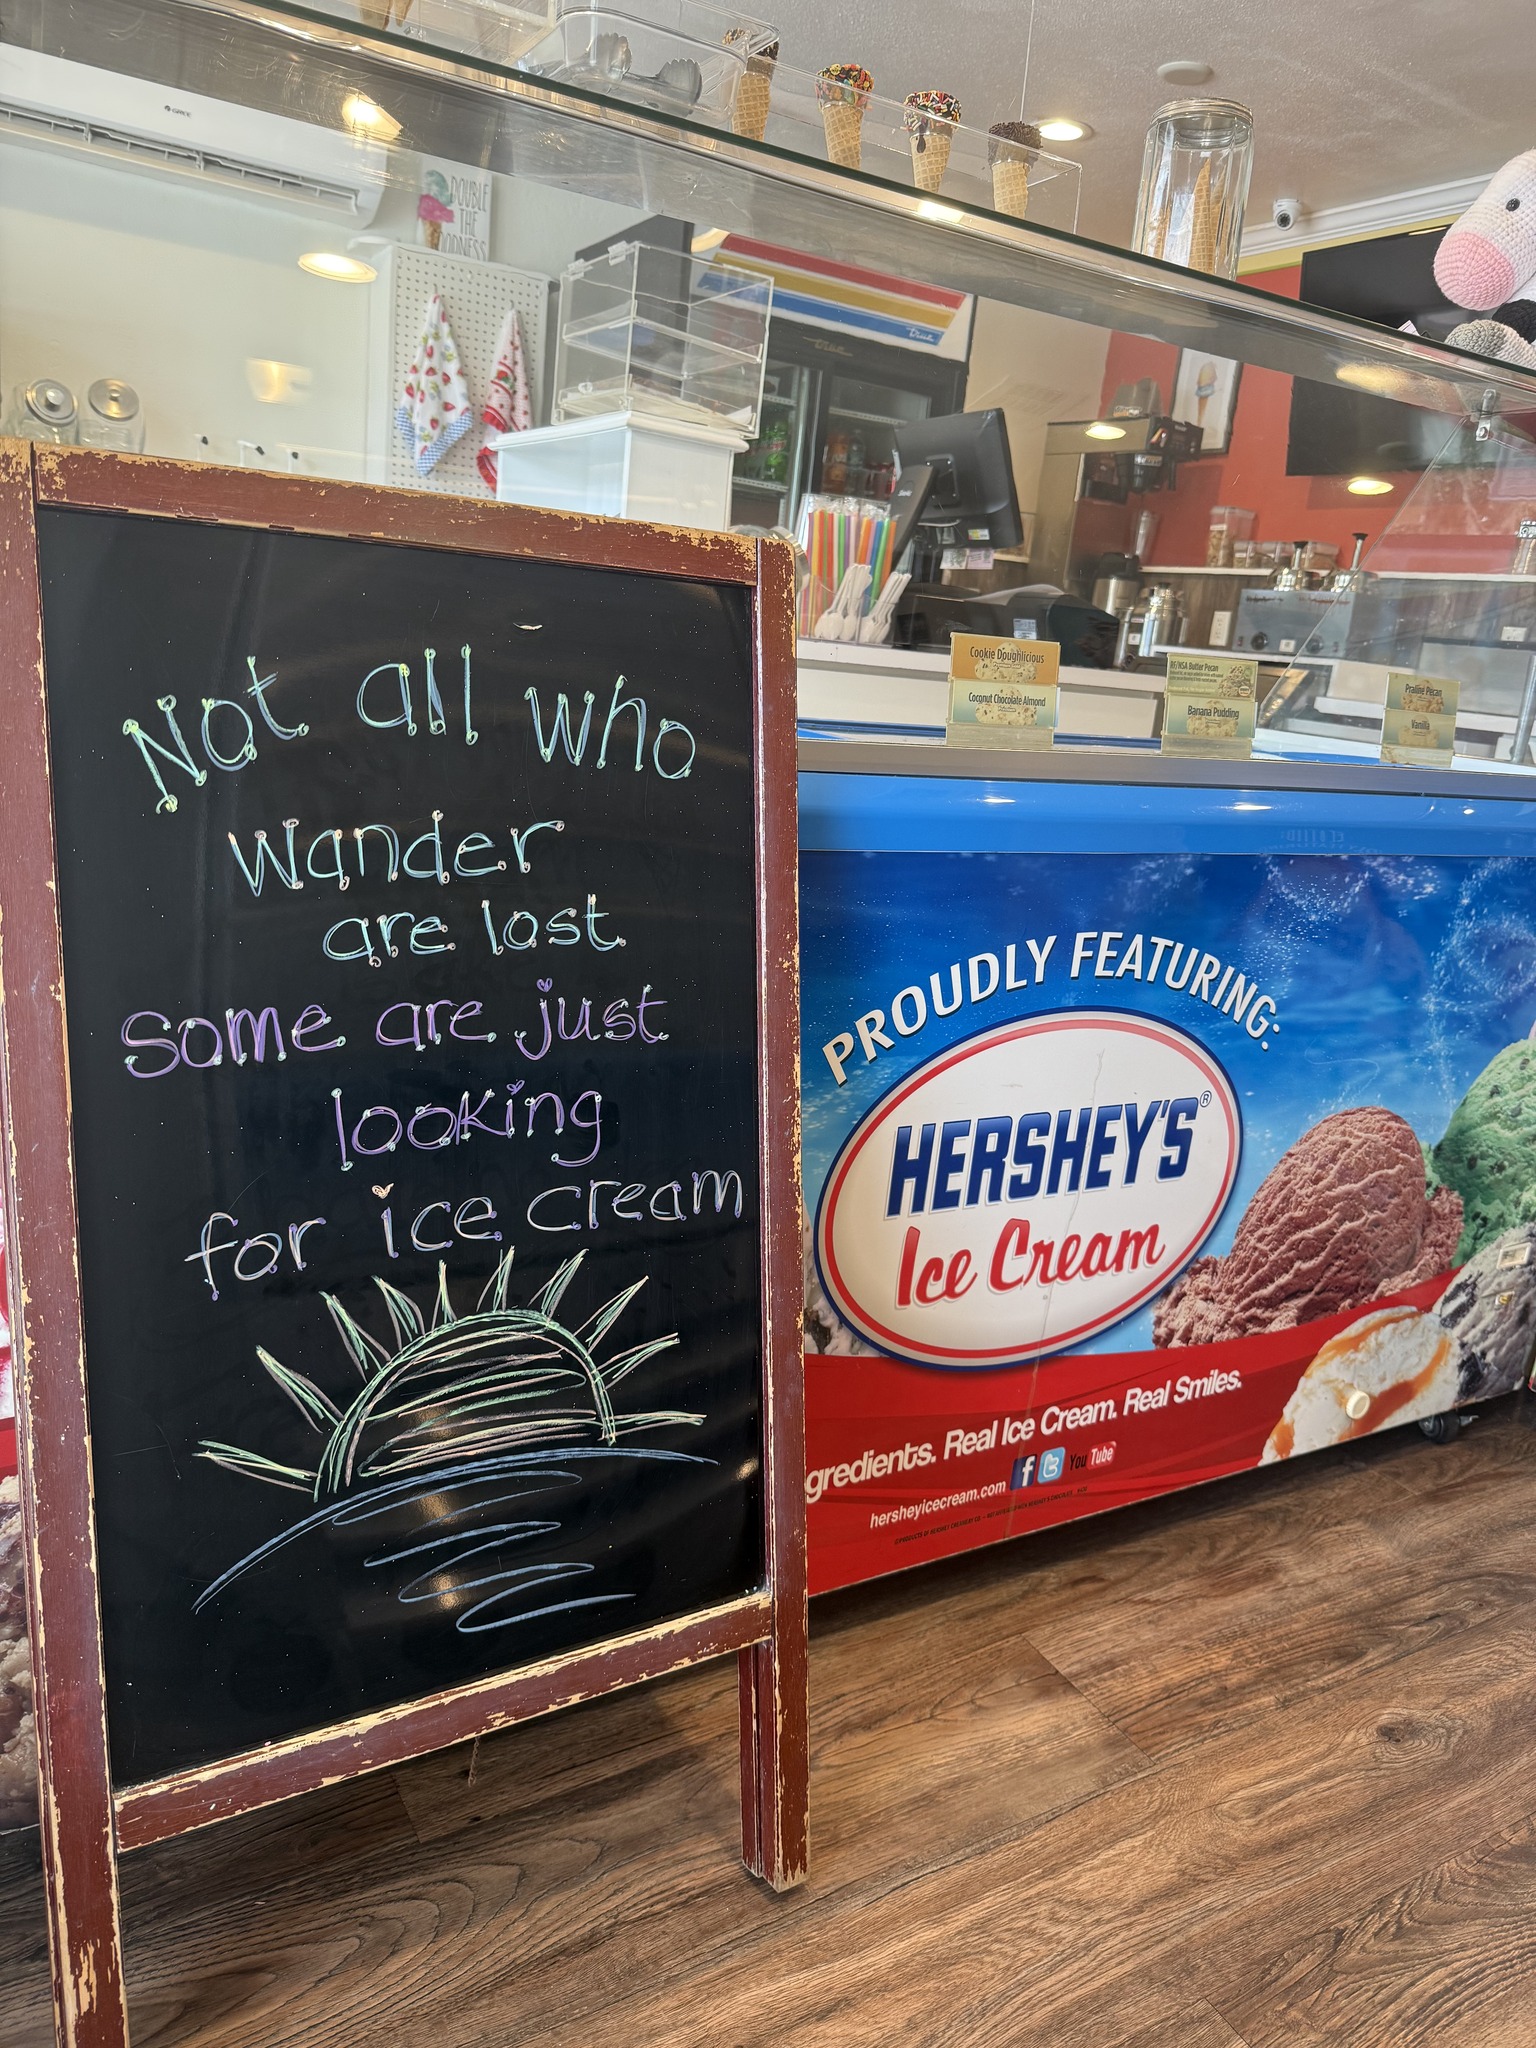 GREE
DOUBLE
THE
ODNESS
True
True
Not all who
wander
are lost
some are just
looking
for ice cream
Cookie Doughlicious
Coconut Chocolate Almond
RF/NSA Butter Pecan
Banana Pudding
Praline Pecan
Vanilla
PROUDLY FEATURING:
HERSHEY'S®
Ice Cream
gredients. Real Ice Cream. Real Smiles.
hersheyicecream.com f t YouTube